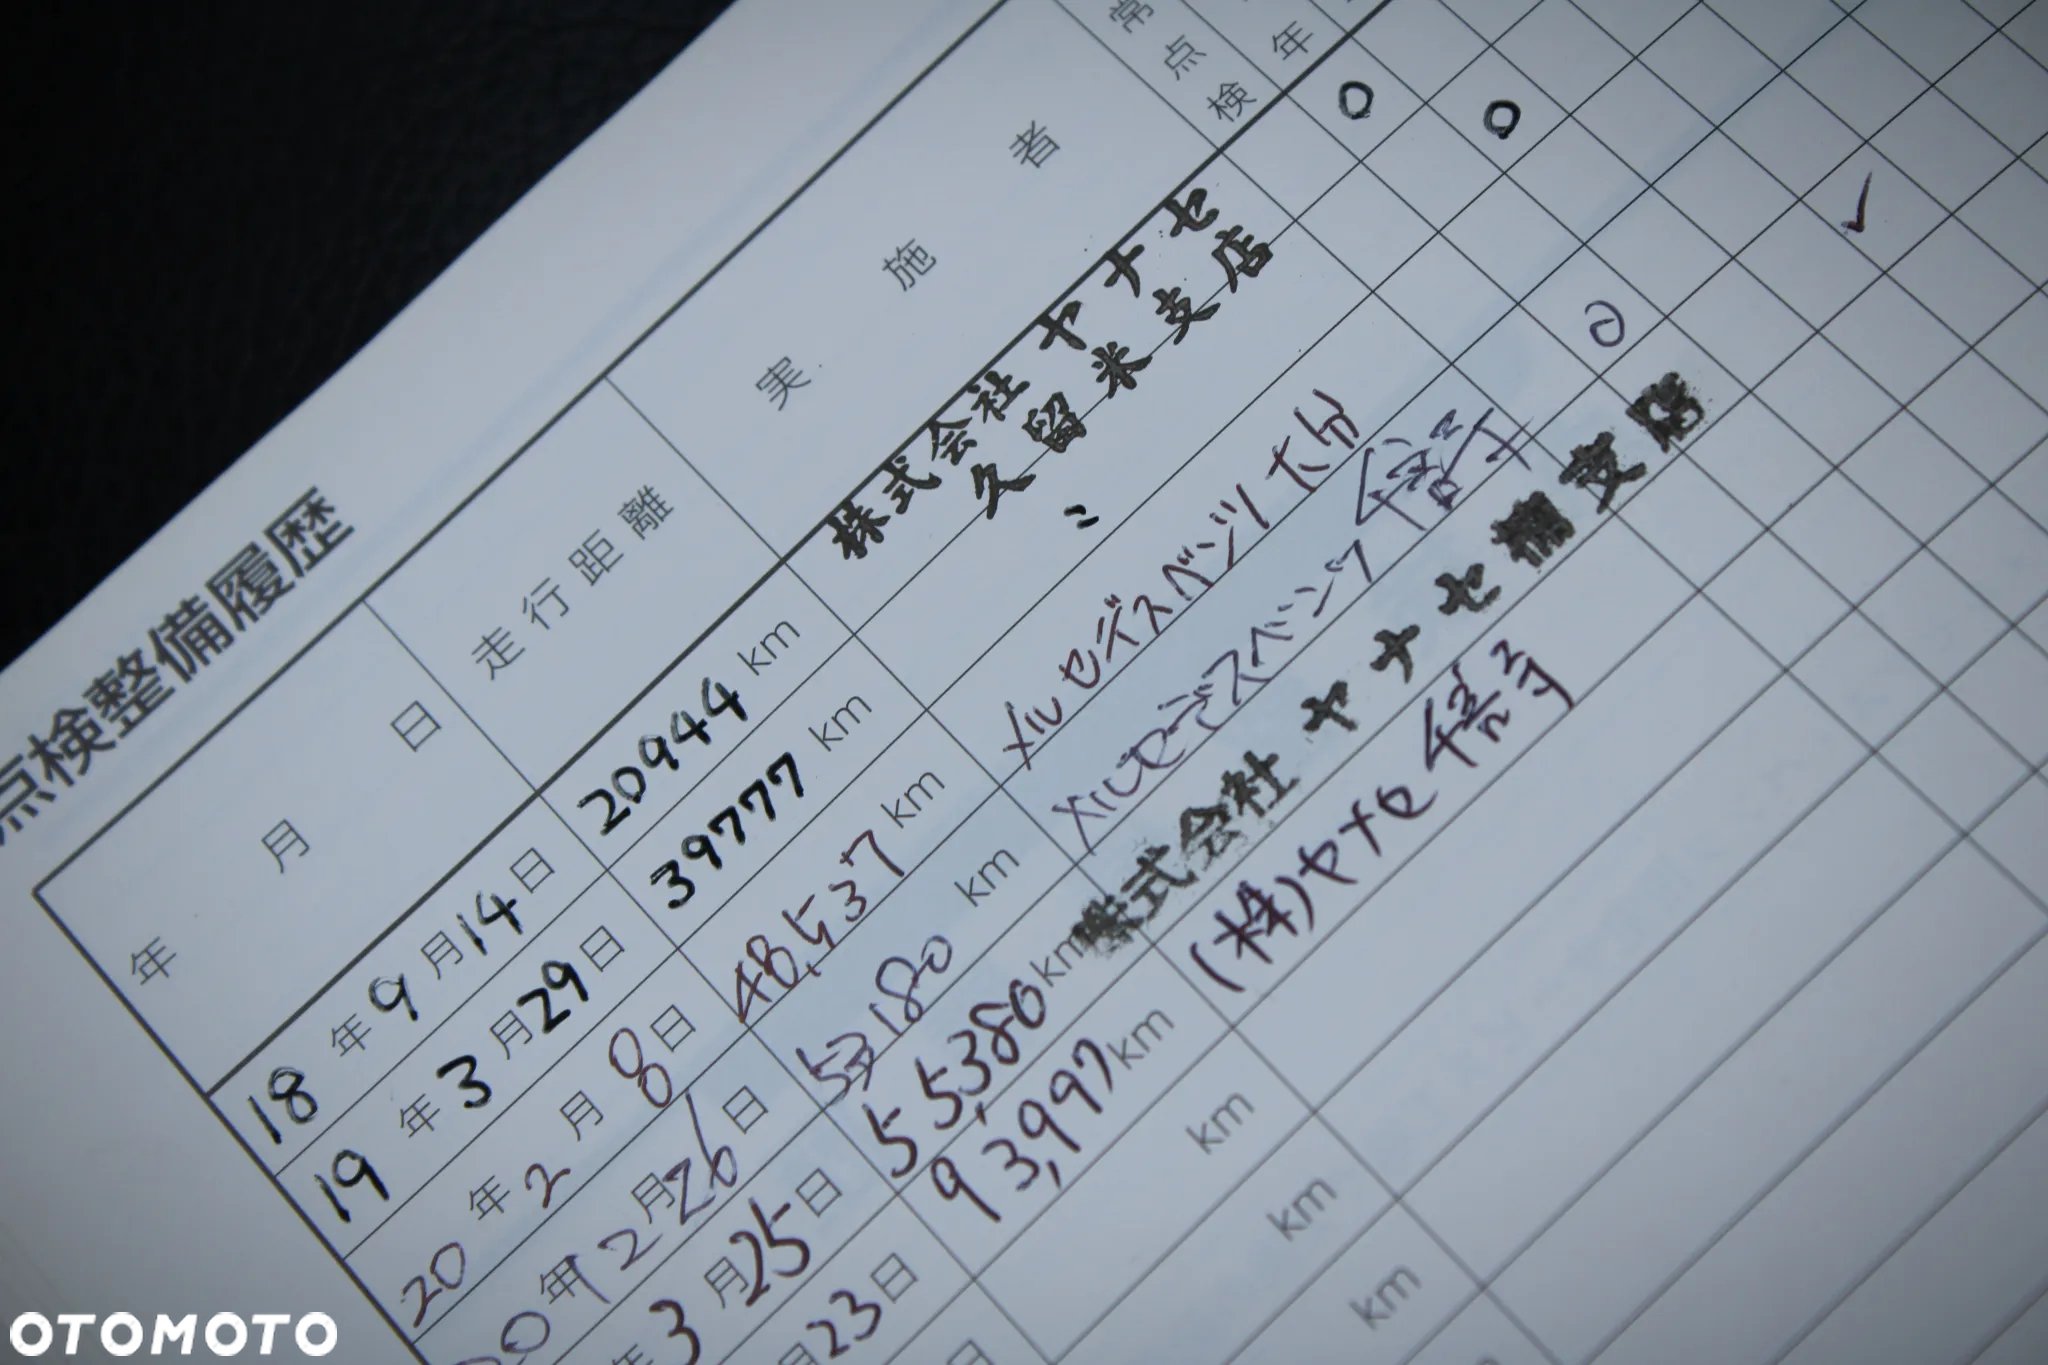 点検整備履歴
年 月 日
走行距離
実施者
常点検
年
18年9月14日 20944km 株式会社ヤナセ
久留米支店
19年3月29日 39777km 〃
20年2月8日 48,537km メルセデスベンツ大分
20年12月26日 53180km メルセデスベンツ
年3月25日 55,380km 株式会社ヤナセ 支店
月23日 93,997km (株)ヤナセ
日 km
km
km
OTOMOTO